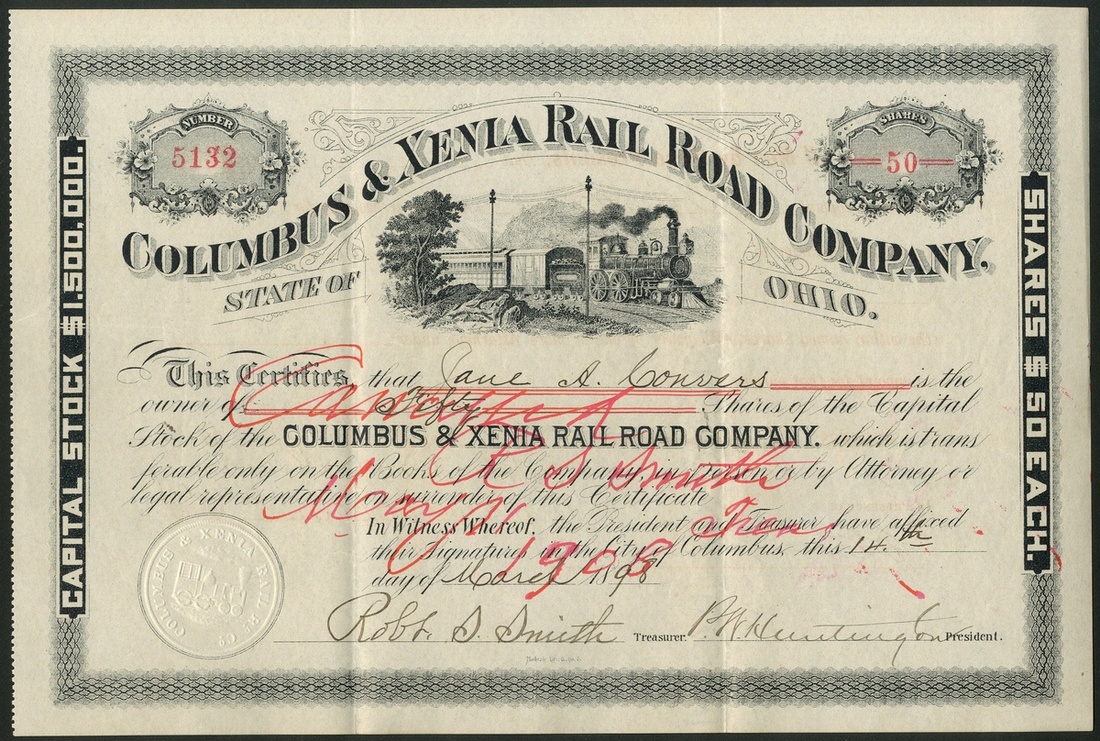 NUMBER
5132
SHARES
50
COLUMBUS & XENIA RAIL ROAD COMPANY.
STATE OF OHIO.
CAPITAL STOCK $1.500.000.
SHARES $50 EACH.
This Certifies that Jane A. Convers is the
owner of Fifty Shares of the Capital
Stock of the COLUMBUS & XENIA RAIL ROAD COMPANY. which is trans
ferable only on the Books of the Company, in person or by Attorney or
legal representative on surrender of this Certificate
In Witness Whereof, the President and Treasurer have affixed
their Signatures in the City of Columbus, this 14th
day of March 1898
Cancelled
R S Smith
Treas
1908
COLUMBUS & XENIA RAIL RD CO
Robt. S. Smith Treasurer. P. W. Huntington President.